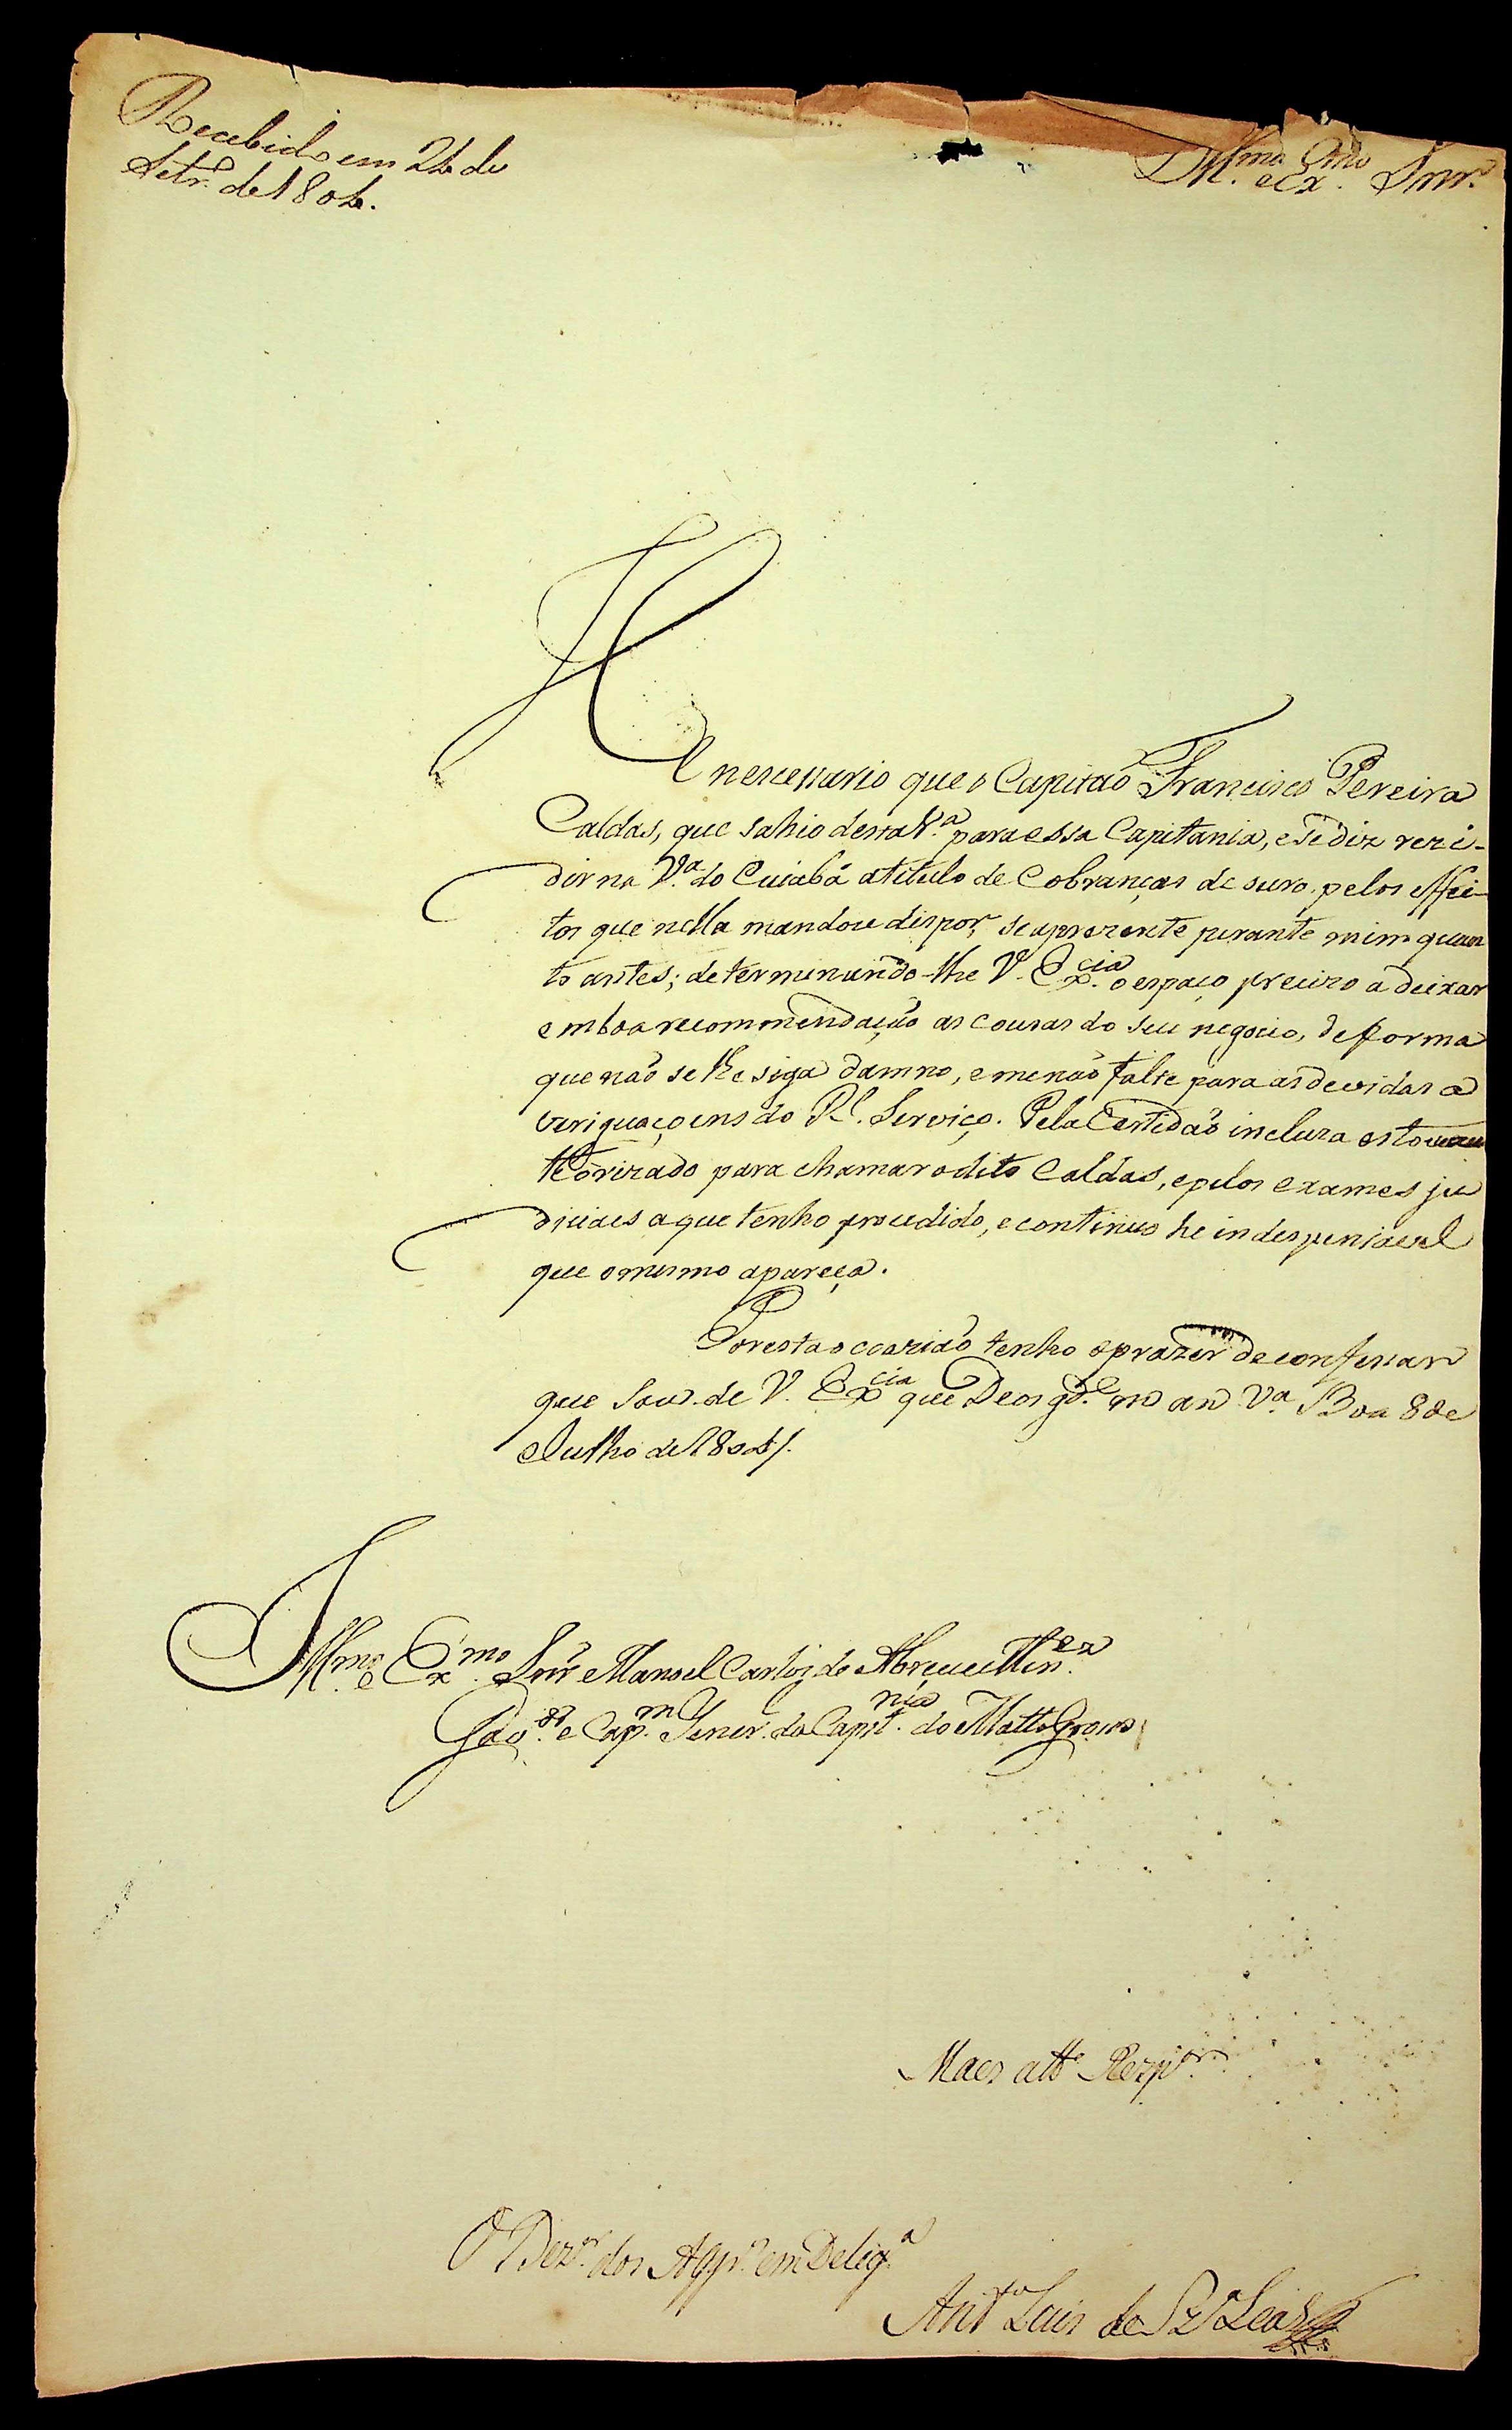 Recebido em 24 de
Setr.º de 1804.
Ill.mo e Ex.mo Snr.
He necessario que o Capitaõ Francisco Pereira
Caldas, que sahio desta V.ª para essa Capitania, e se diz rezi-
dir na V.ª do Cuiabá a titulo de Cobranças de suro pelos effei-
tos que nella mandou dispor, se aprezente perante mim quan
to antes; determinando-lhe V. Ex.cia o espaço precizo a deixar
em boa recommendaçaõ as cousas do seu negocio, de forma
que naõ se lhe siga damno, e me naõ falte para as devidas a
veriguaçoens do R.l Serviço. Pela Certidaõ incluza estou au
thorizado para chamar o dito Caldas, e pelos exames ju
diciaes a que tenho procedido, e continuo he indespensavel
que o mesmo apareça.
Por esta occaziaõ tenho o prazer de confessar
que sou de V. Ex.cia que Deos g.de m an V.ª Boa 8 de
Julho de 1804/.
Ill.mo e Ex.mo Snr Manoel Carlos de Abreu e Men.ez
Gov.or e Cap.m Gener. da Capit.nia do Matto Grosso
Maes att.º Resp.or
O Dez.or dos Agg.os em Delig.ª
Ant.º Luis de Sz.ª Leal